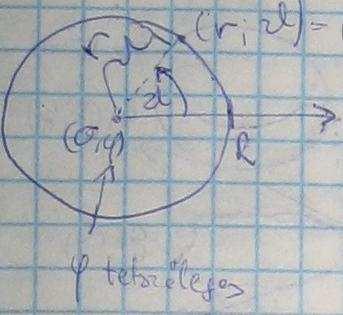 r (r; α) =
α
(0,φ) R
φ tetszőleges